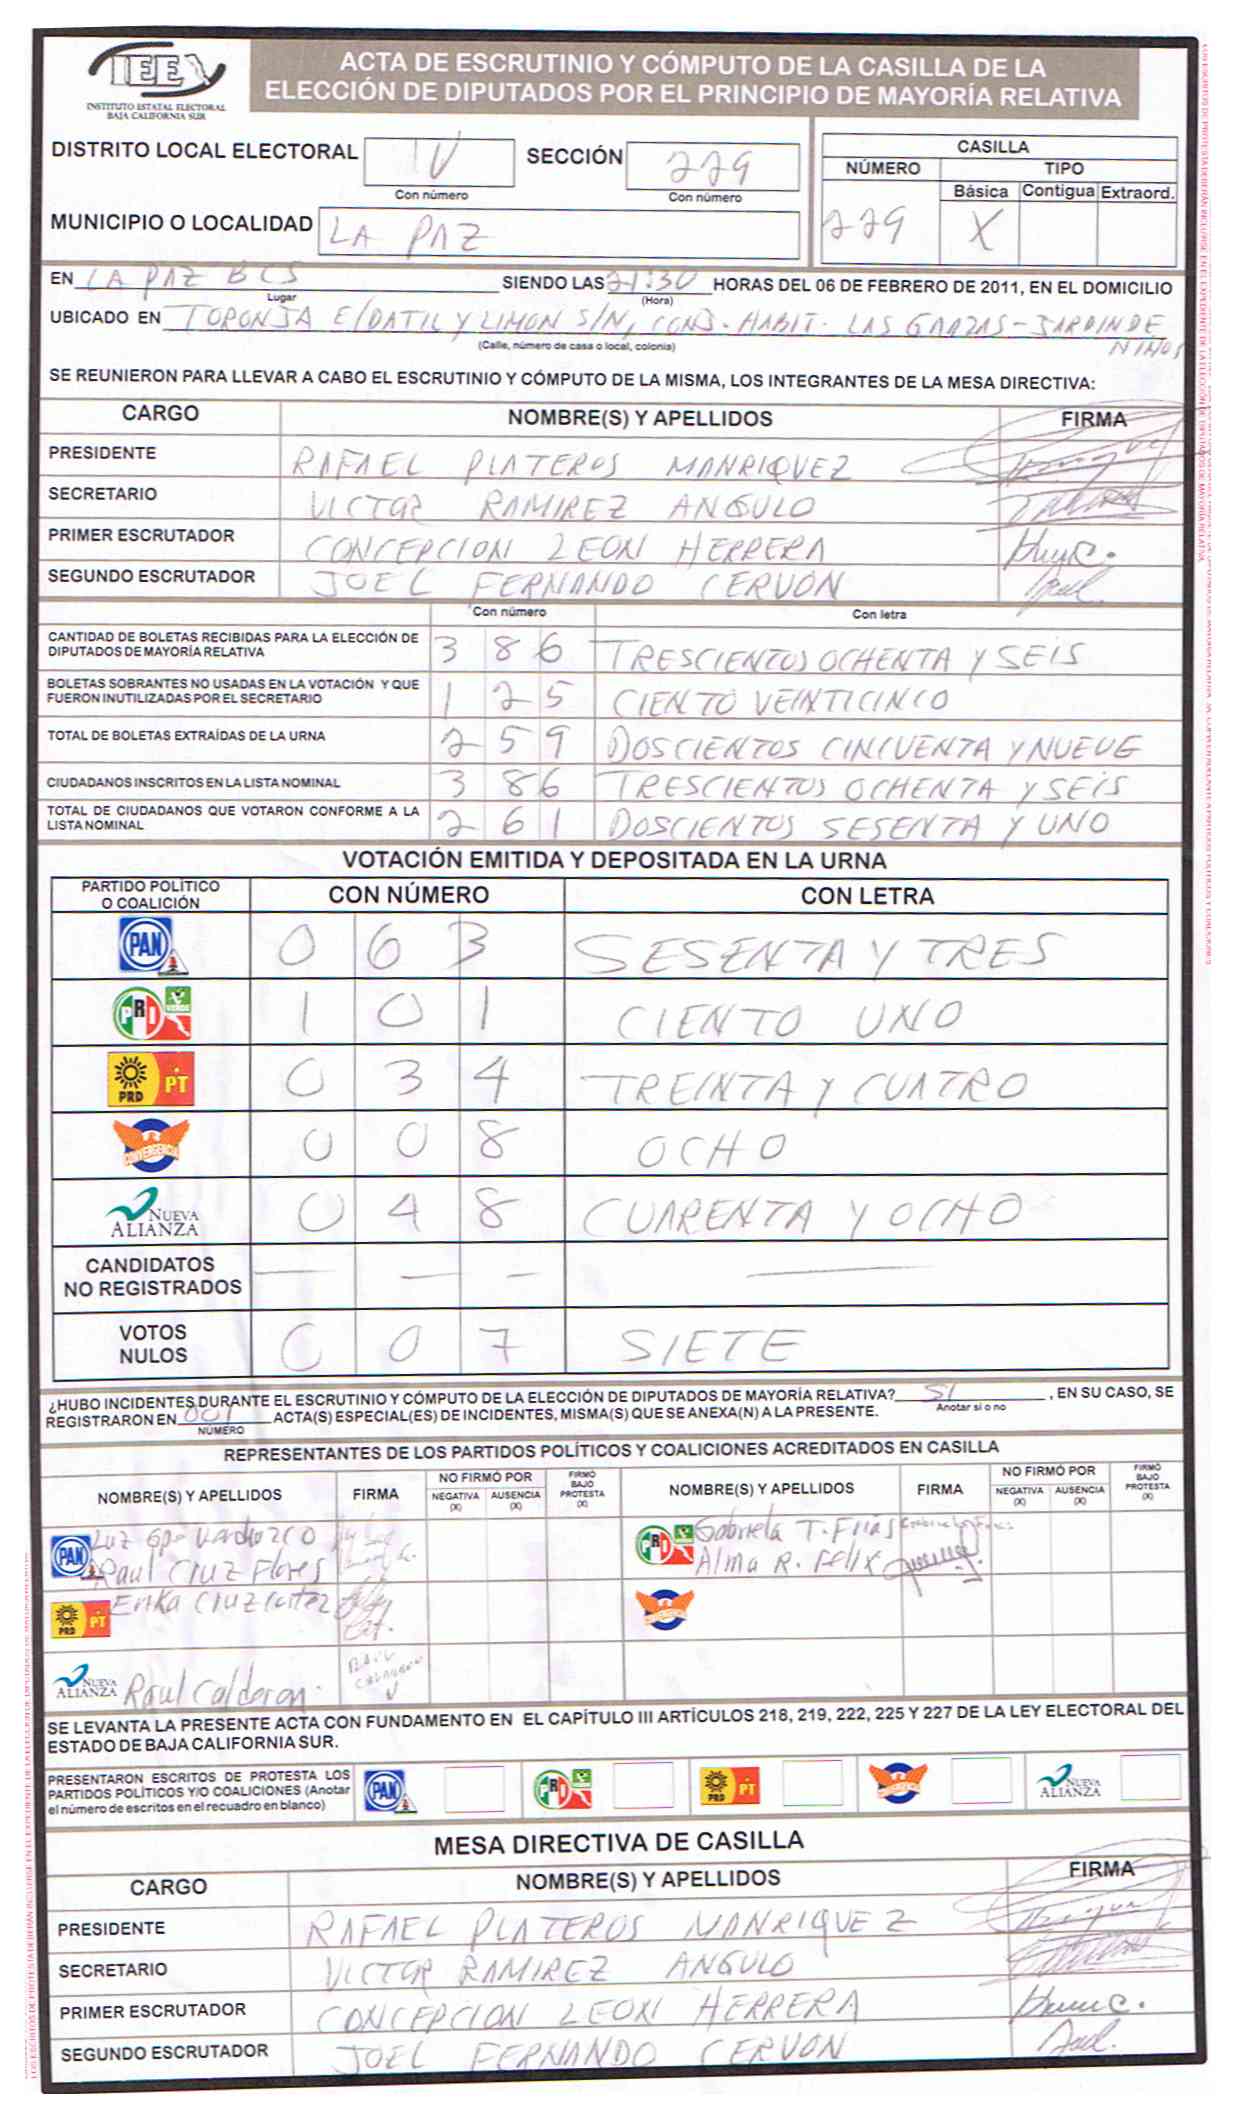 IEE
INSTITUTO ESTATAL ELECTORAL
BAJA CALIFORNIA SUR
ACTA DE ESCRUTINIO Y CÓMPUTO DE LA CASILLA DE LA
ELECCIÓN DE DIPUTADOS POR EL PRINCIPIO DE MAYORÍA RELATIVA
DISTRITO LOCAL ELECTORAL IV SECCIÓN 229
Con número Con número
MUNICIPIO O LOCALIDAD LA PAZ
CASILLA
NÚMERO TIPO
Básica Contigua Extraord.
229 X
EN LA PAZ BCS SIENDO LAS 21:30 HORAS DEL 06 DE FEBRERO DE 2011, EN EL DOMICILIO
Lugar (Hora)
UBICADO EN TORONJA E/DATIL Y LIMON S/N, CONJ. HABIT. LAS GARZAS-JARDIN DE
NIÑOS
(Calle, número de casa o local, colonia)
SE REUNIERON PARA LLEVAR A CABO EL ESCRUTINIO Y CÓMPUTO DE LA MISMA, LOS INTEGRANTES DE LA MESA DIRECTIVA:
CARGO NOMBRE(S) Y APELLIDOS FIRMA
PRESIDENTE RAFAEL PLATEROS MANRIQUEZ
SECRETARIO VICTOR RAMIREZ ANGULO
PRIMER ESCRUTADOR CONCEPCION LEON HERRERA
SEGUNDO ESCRUTADOR JOEL FERNANDO CERVON
Con número Con letra
CANTIDAD DE BOLETAS RECIBIDAS PARA LA ELECCIÓN DE
DIPUTADOS DE MAYORÍA RELATIVA 3 8 6 TRESCIENTOS OCHENTA Y SEIS
BOLETAS SOBRANTES NO USADAS EN LA VOTACIÓN Y QUE
FUERON INUTILIZADAS POR EL SECRETARIO 1 2 5 CIENTO VEINTICINCO
TOTAL DE BOLETAS EXTRAÍDAS DE LA URNA 2 5 9 DOSCIENTOS CINCUENTA Y NUEVE
CIUDADANOS INSCRITOS EN LA LISTA NOMINAL 3 8 6 TRESCIENTOS OCHENTA Y SEIS
TOTAL DE CIUDADANOS QUE VOTARON CONFORME A LA
LISTA NOMINAL 2 6 1 DOSCIENTOS SESENTA Y UNO
VOTACIÓN EMITIDA Y DEPOSITADA EN LA URNA
PARTIDO POLÍTICO
O COALICIÓN CON NÚMERO CON LETRA
PAN 0 6 3 SESENTA Y TRES
PRI VERDE 1 0 1 CIENTO UNO
PRD PT 0 3 4 TREINTA Y CUATRO
CONVERGENCIA 0 0 8 OCHO
NUEVA ALIANZA 0 4 8 CUARENTA Y OCHO
CANDIDATOS
NO REGISTRADOS — — — —
VOTOS
NULOS 0 0 7 SIETE
¿HUBO INCIDENTES DURANTE EL ESCRUTINIO Y CÓMPUTO DE LA ELECCIÓN DE DIPUTADOS DE MAYORÍA RELATIVA? SI , EN SU CASO, SE
Anotar si o no
REGISTRARON EN 001 ACTA(S) ESPECIAL(ES) DE INCIDENTES, MISMA(S) QUE SE ANEXA(N) A LA PRESENTE.
NÚMERO
REPRESENTANTES DE LOS PARTIDOS POLÍTICOS Y COALICIONES ACREDITADOS EN CASILLA
NOMBRE(S) Y APELLIDOS FIRMA NO FIRMÓ POR NEGATIVA (X) AUSENCIA (X) FIRMÓ BAJO PROTESTA (X) NOMBRE(S) Y APELLIDOS FIRMA NO FIRMÓ POR NEGATIVA (X) AUSENCIA (X) FIRMÓ BAJO PROTESTA (X)
PAN Luz Gpe PRI Gabriela T. Frias
Raul Cruz Flores Alma R. Felix
PRD PT Erika Cruz Cortez CONVERGENCIA
NUEVA ALIANZA Raul Calderon. RAUL CALDERON
SE LEVANTA LA PRESENTE ACTA CON FUNDAMENTO EN EL CAPÍTULO III ARTÍCULOS 218, 219, 222, 225 Y 227 DE LA LEY ELECTORAL DEL
ESTADO DE BAJA CALIFORNIA SUR.
PRESENTARON ESCRITOS DE PROTESTA LOS
PARTIDOS POLÍTICOS Y/O COALICIONES (Anotar
el número de escritos en el recuadro en blanco) PAN PRI PRD PT CONVERGENCIA NUEVA ALIANZA
MESA DIRECTIVA DE CASILLA
CARGO NOMBRE(S) Y APELLIDOS FIRMA
PRESIDENTE RAFAEL PLATEROS MANRIQUEZ
SECRETARIO VICTOR RAMIREZ ANGULO
PRIMER ESCRUTADOR CONCEPCION LEON HERRERA
SEGUNDO ESCRUTADOR JOEL FERNANDO CERVON